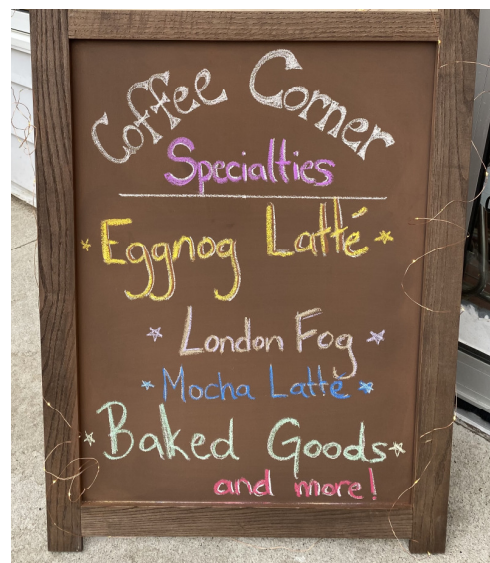 Coffee Corner
Specialties
Eggnog Latté
London Fog
Mocha Latte
Baked Goods
and more!